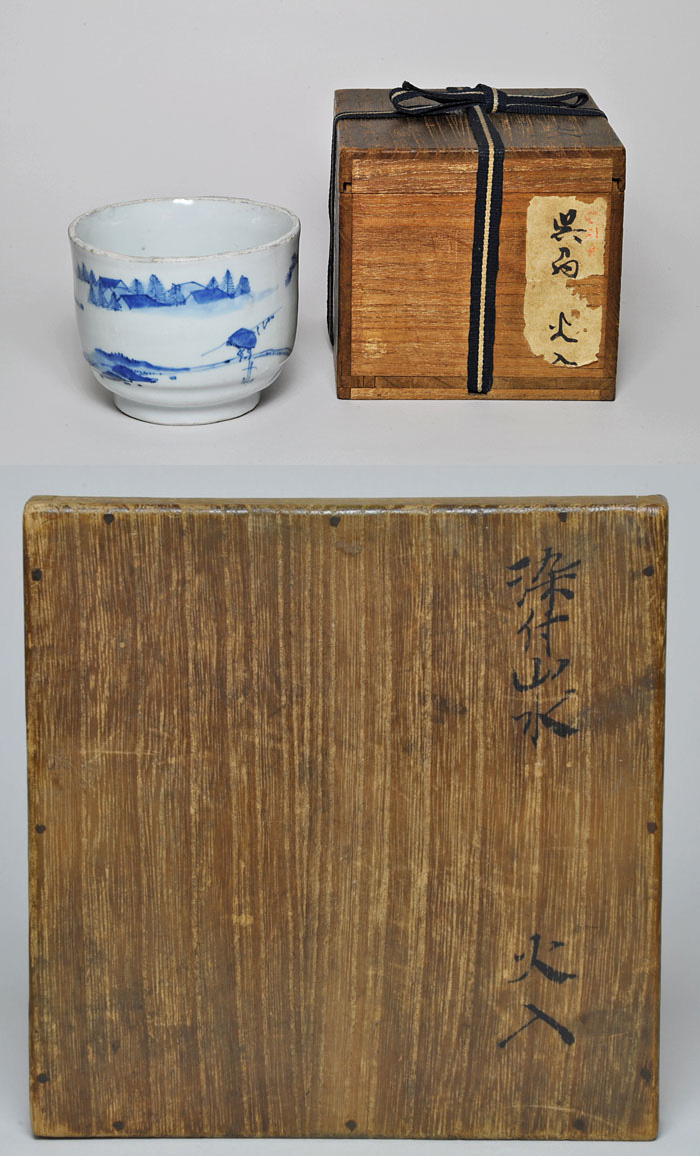 呉須 火入
染付山水 火入